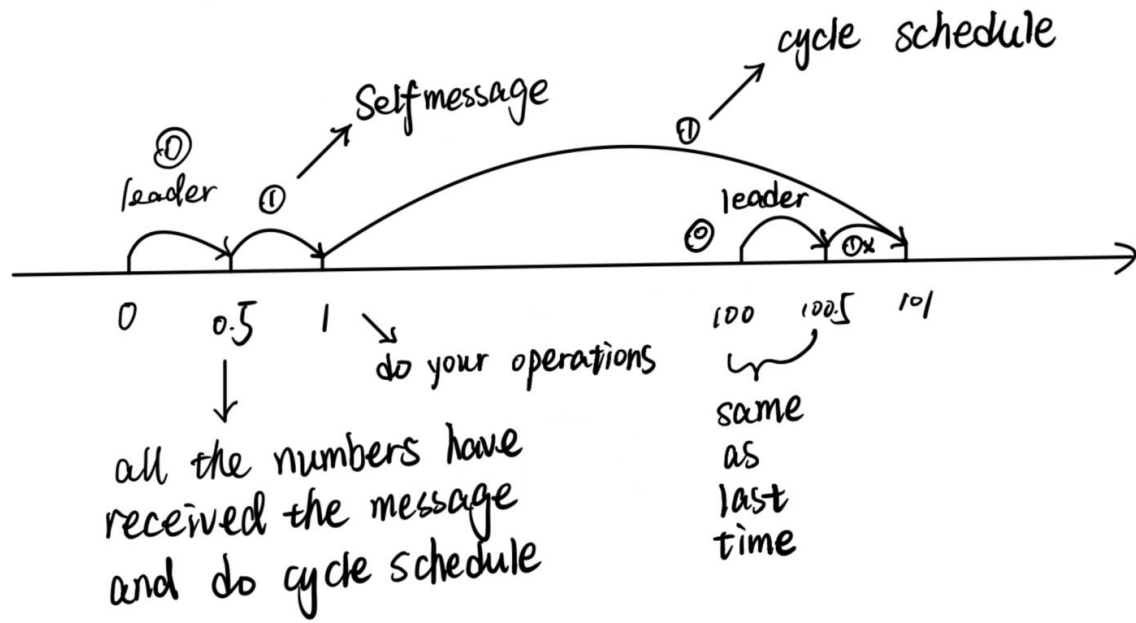 cycle schedule
Selfmessage
⓪
leader
①
①
leader
⓪
①x
0
0.5
1
100
100.5
101
do your operations
all the numbers have
received the message
and do cycle schedule
same
as
last
time